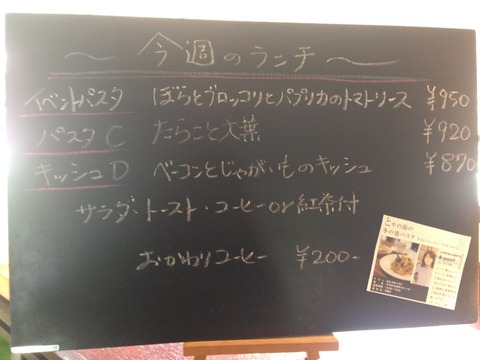 ～今週のランチ～
イベントパスタ ぼらとブロッコリとパプリカのトマトソース ¥950
パスタC たらこと大葉 ¥920
キッシュD ベーコンとじゃがいものキッシュ ¥870
サラダ・トースト・コーヒーor紅茶付
おかわりコーヒー ¥200-
冬の恵パスタ